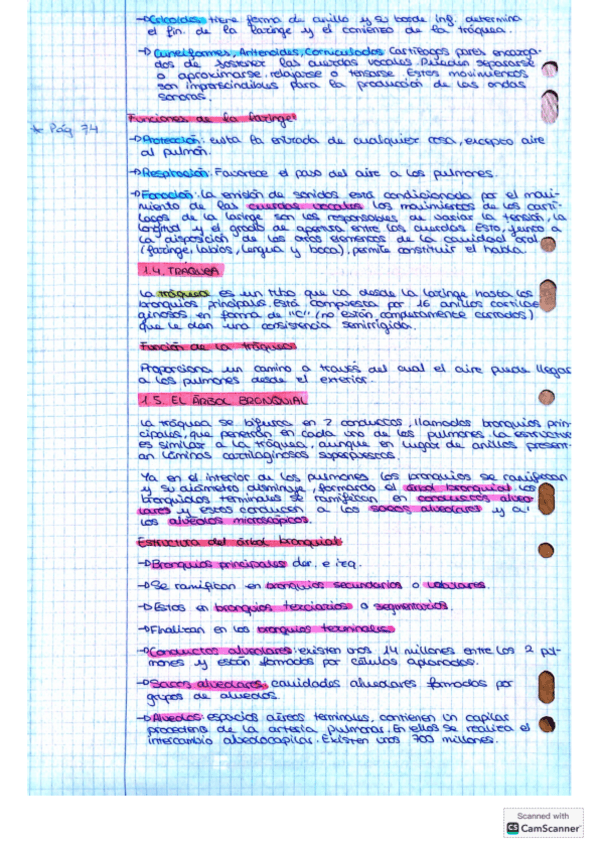 → Cricoides: tiene forma de anillo y su borde inf. determina
el fin de la laringe y el comienzo de la tráquea.
→ Cuneiformes, Aritenoides, Corniculados. Cartílagos pares encarga-
dos de sostener las cuerdas vocales. Pueden separarse
o aproximarse, relajarse o tensarse. Estos movimientos
son imprescindibles para la producción de las ondas
sonoras.
Funciones de la laringe
* Pág 74
→ Protección: evita la entrada de cualquier cosa, excepto aire
al pulmón.
→ Respiración: Favorece el paso del aire a los pulmones.
→ Fonación: La emisión de sonidos está condicionada por el movi-
miento de las cuerdas vocales. Los movimientos de los cartí-
lagos de la laringe son los responsables de variar la tensión, la
longitud y el grado de apertura entre las cuerdas. Esto, junto a
la disposición de los otros elementos de la cavidad oral
(faringe, labios, lengua y boca), permite constituir el habla.
1.4. TRÁQUEA
La tráquea es un tubo que va desde la laringe hasta los
bronquios principales. Está compuesta por 16 anillos cartila-
ginosos en forma de "C" (no están completamente cerrados)
que le dan una consistencia semirrígida.
Función de la tráquea
Proporciona un camino a través del cual el aire puede llegar
a los pulmones desde el exterior.
1.5. EL ÁRBOL BRONQUIAL
La tráquea se bifurca en 2 conductos, llamados bronquios prin-
cipales, que penetran en cada uno de los pulmones. La estructura
es similar a la tráquea, aunque en lugar de anillos presen-
tan láminas cartilaginosas superpuestas.
Ya en el interior de los pulmones los bronquios se ramifican
y su diámetro disminuye, formando el árbol bronquial. Los
bronquiolos terminales se ramifican en conductos alveo-
lares y estos conducen a los sacos alveolares y a
los alveolos microscópicos.
Estructura del árbol bronquial
→ Bronquios principales der. e izq.
→ Se ramifican en bronquios secundarios o lobulares.
→ Estos en bronquios terciarios o segmentarios.
→ Finalizan en los bronquios terminales
→ Conductos alveolares: existen unos 14 millones entre los 2 pul-
mones y están formados por células aplanadas.
→ Sacos alveolares, cavidades alveolares formados por
grupos de alveolos.
→ Alveolos: espacios aéreos terminales, contienen un capilar
procedente de la arteria pulmonar. En ellos se realiza el
intercambio alveolocapilar. Existen unos 700 millones.
Scanned with
CS CamScanner